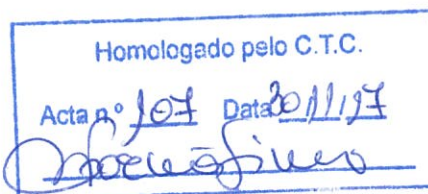 Homologado pelo C.T.C.
Acta n.º 107 Data 30/11/17